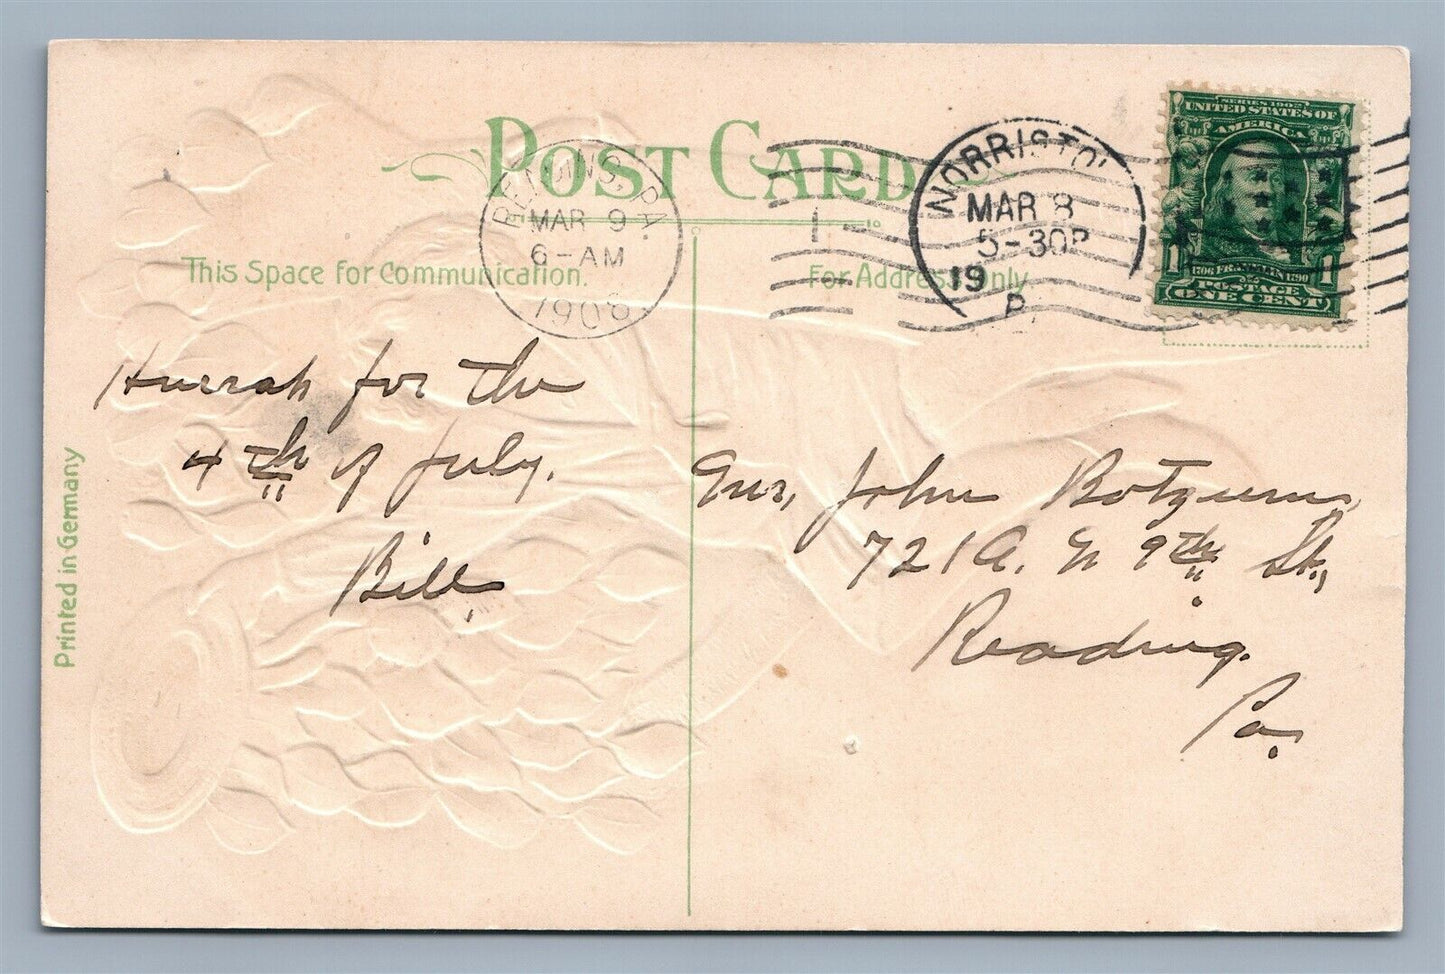 POST CARD
READING, PA.
MAR 9
6-AM
1908
NORRISTO
MAR 8
5-30P
19
P
SERIES 1902
UNITED STATES OF
AMERICA
1706 FRANKLIN 1790
1 POSTAGE 1
ONE CENT
This Space for Communication.
For Address Only
Hurrah for the
4th of July.
Bill
Mr. John
721A. N 9th St.,
Reading.
Pa.
Printed in Germany